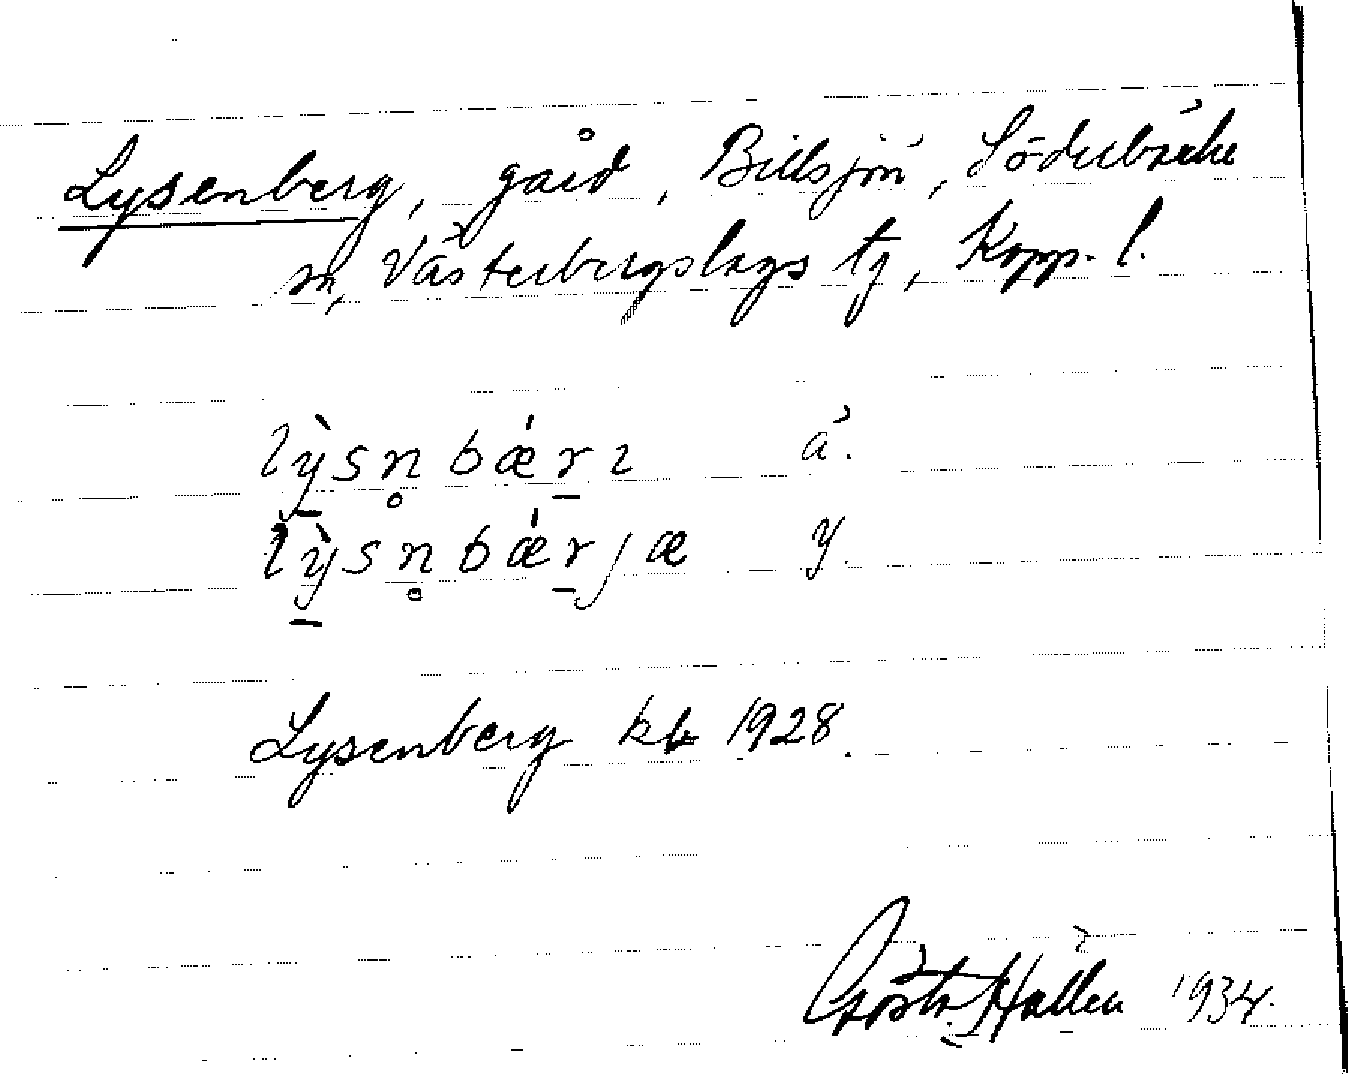 Lysenberg, gård, Billsjön, Söderbärke
sn, Västerbergslags tg, Kopp. l.
lỳ̠sn̥bǽr̠ı ä.
lỳ̠sn̥bǽr̠jæ y.
Lysenberg kb 1928.
Gösta Hällen 1934.